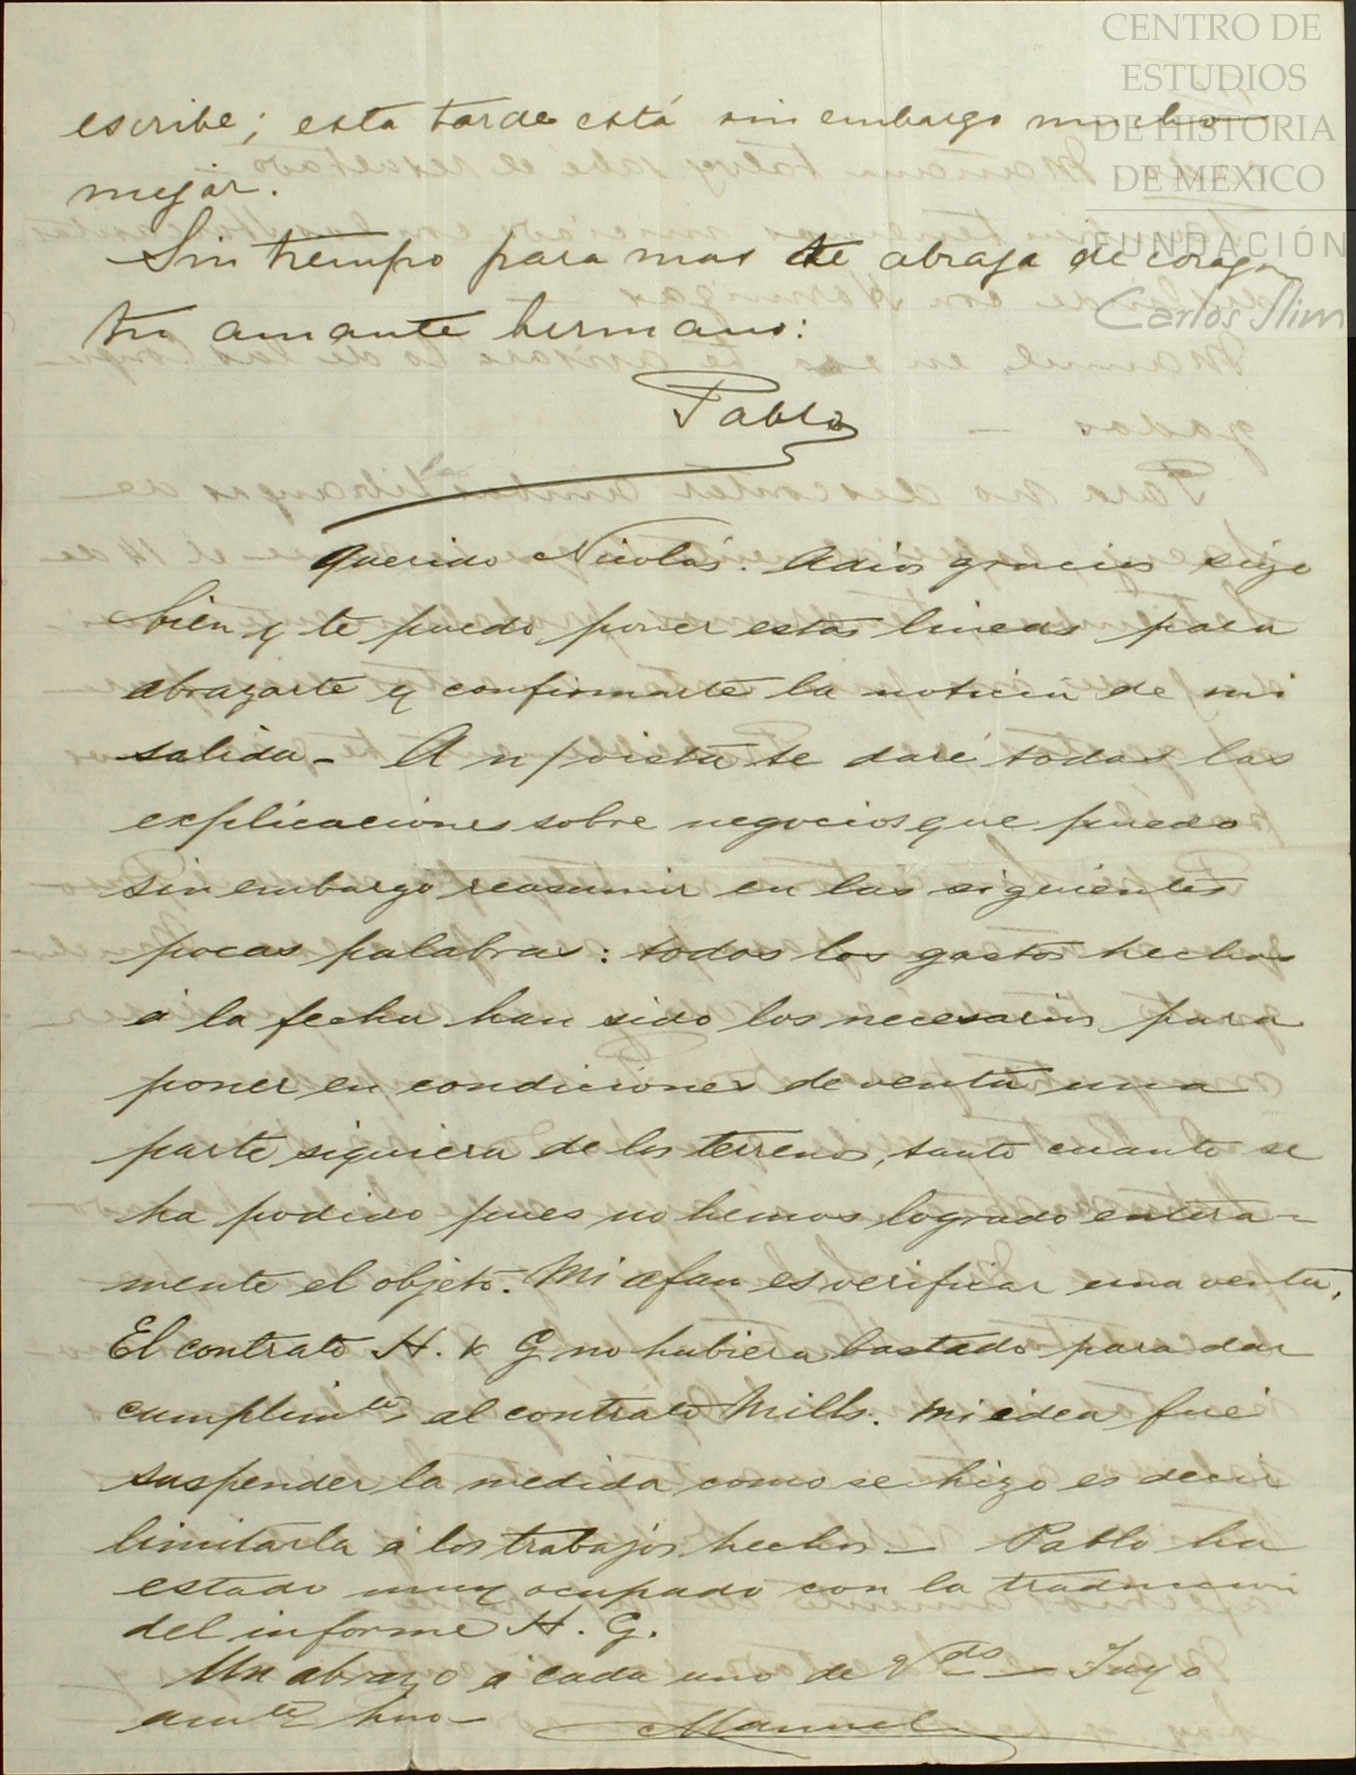 CENTRO DE
ESTUDIOS
DE HISTORIA
DE MEXICO
FUNDACIÓN
Carlos Slim
escribe; esta tarde está sin embargo mucho
mejor.
Sin tiempo para mas te abraza de corazon
tu amante hermano:
Pablo
Querido Nicolás. Adios gracias sigo
bien y te puedo poner estas lineas para
abrazarte y confirmarte la noticia de mi
salida - A n/ vista te daré todas las
explicaciones sobre negocios que puedo
sin embargo reasumir en las siguientes
pocas palabras: todos los gastos hechos
á la fecha han sido los necesarios para
poner en condiciones de venta una
parte siquiera de los terrenos, tanto cuanto se
ha podido pues no hemos logrado entera-
mente el objeto. Mi afan es verificar una venta.
El contrato H. & G no hubiera bastado para dar
cumplimto al contrato Mills. Mi idea fué
suspender la medida como se hizo es decir
limitarla á los trabajos hechos - Pablo ha
estado muy ocupado con la traduccion
del informe H. G.
Un abrazo á cada uno de Vds - Tuyo
amte hno -
Manuel